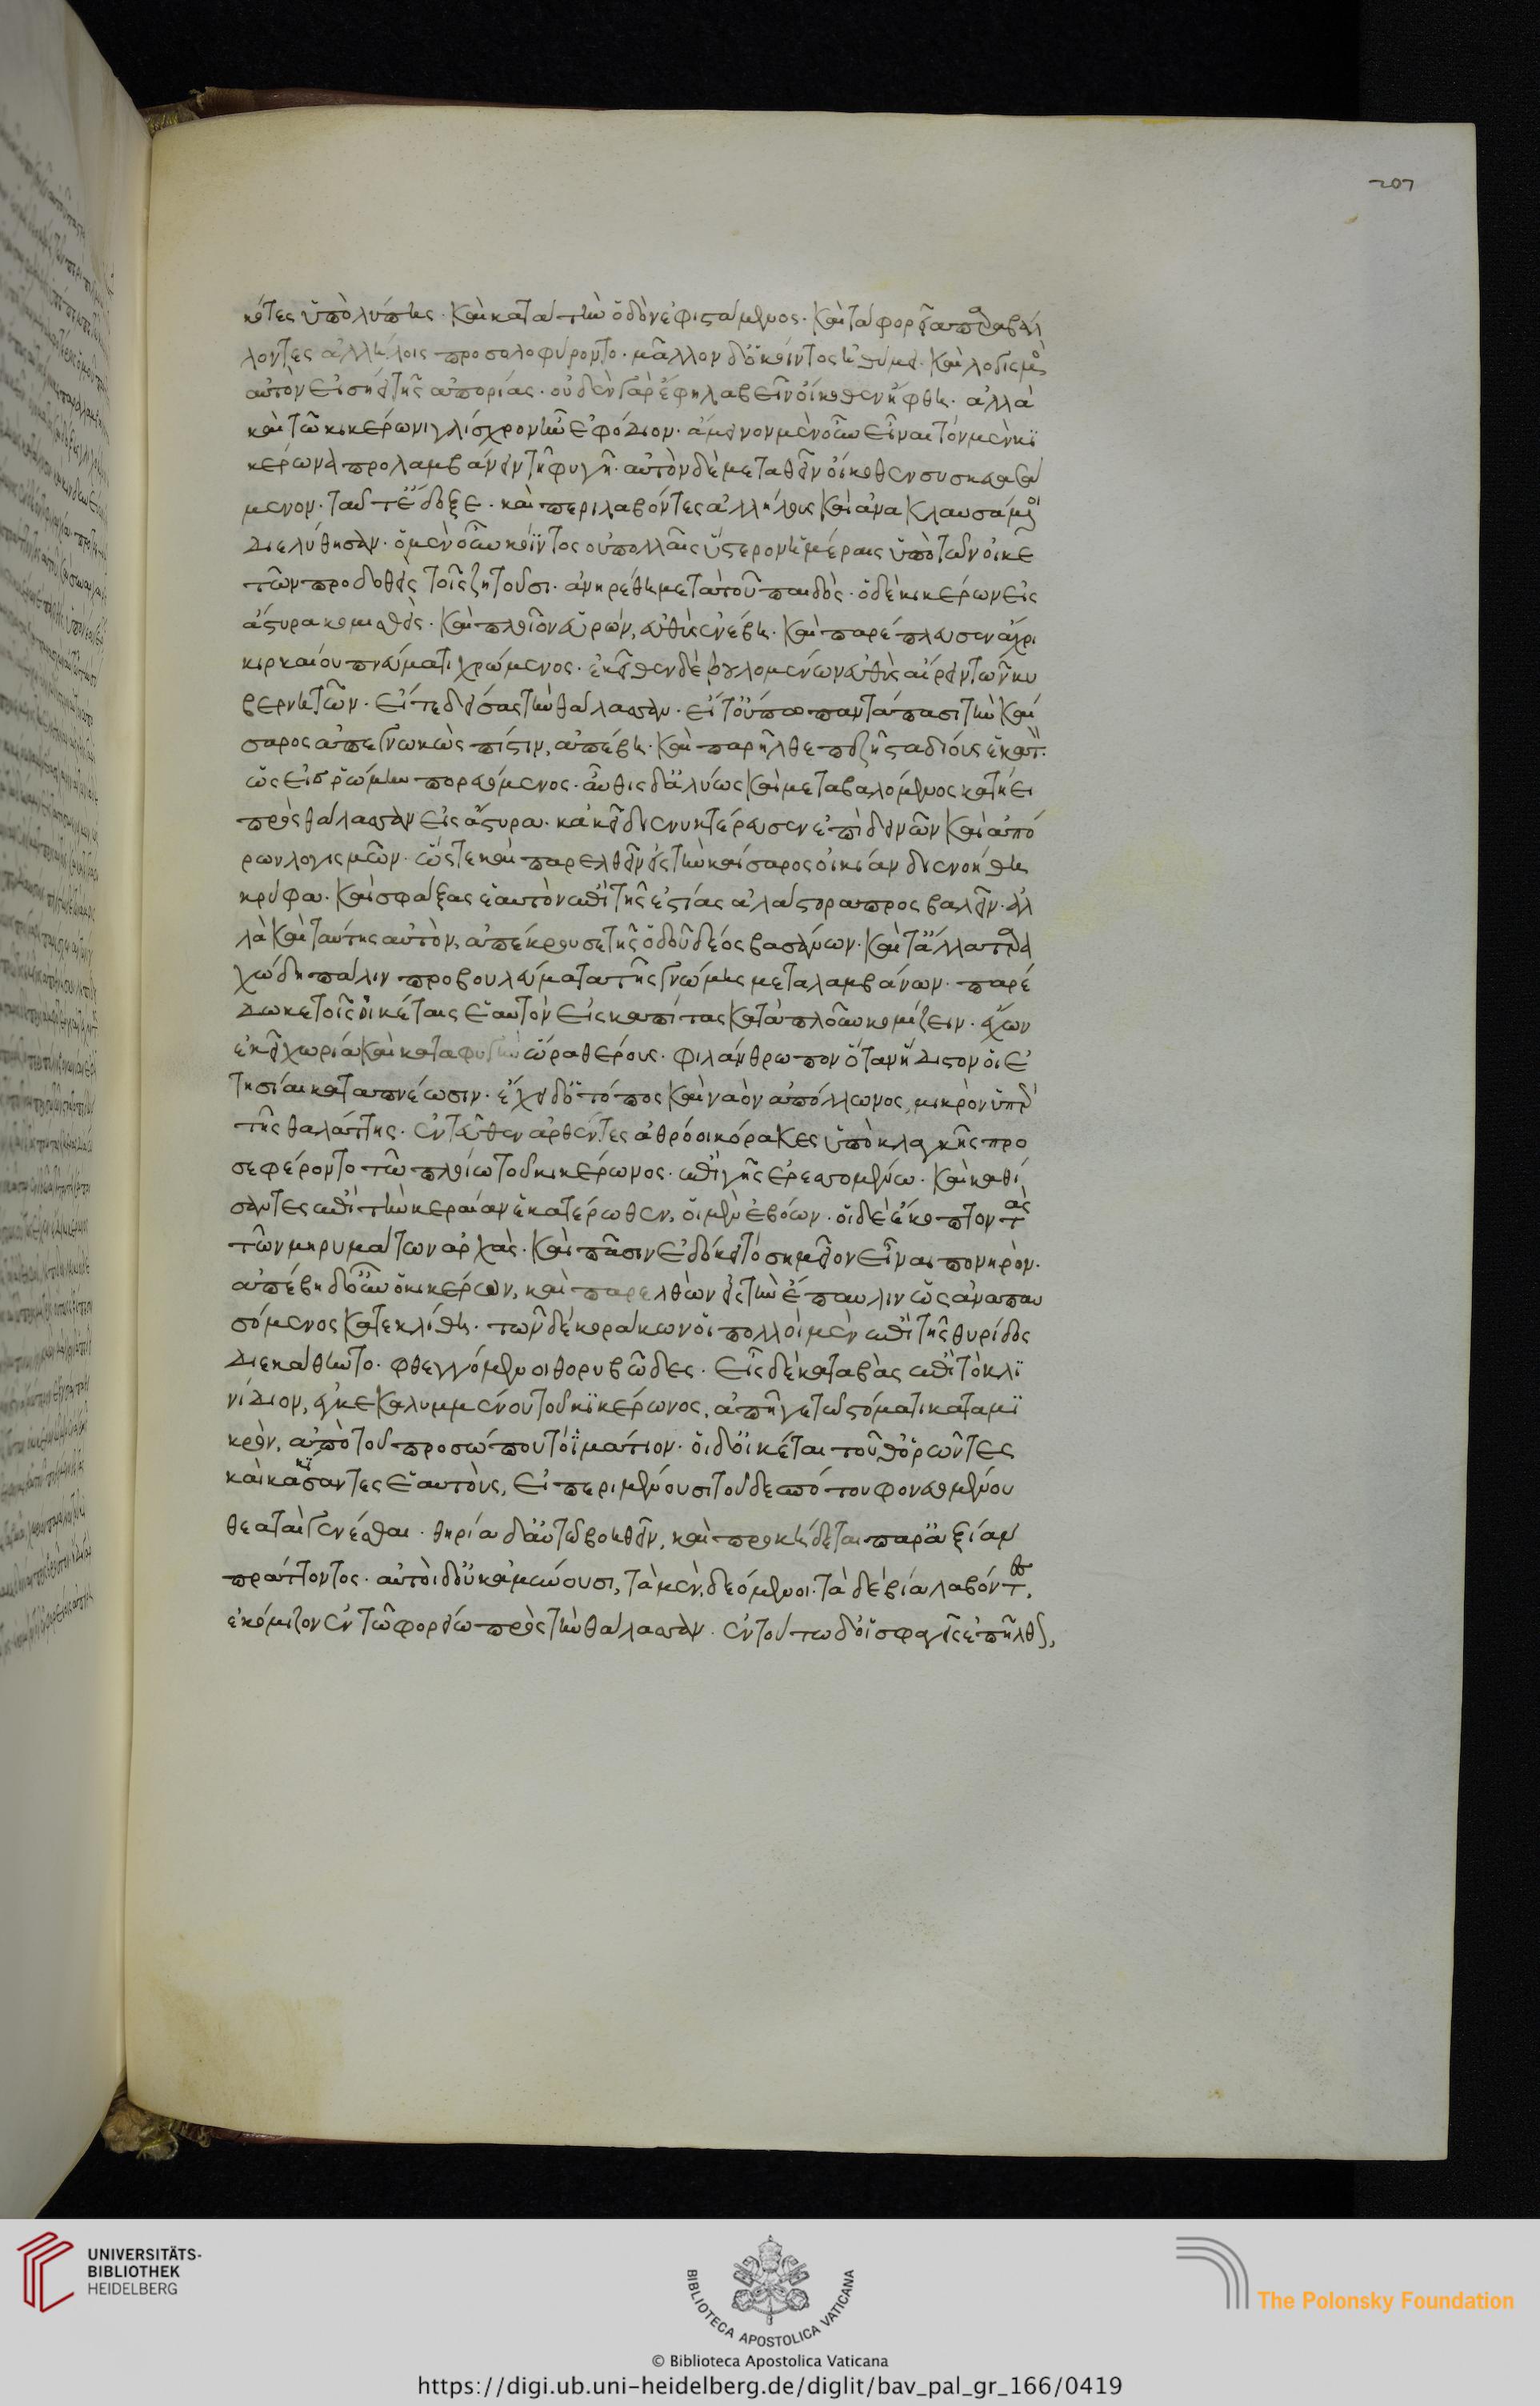 207
κότες ὑπὸ λύπης. καὶ κατὰ τὴν ὁδὸν ἐφιστάμενος. καὶ τὰ φορεῖα παραβάλ
λοντες ἀλλήλοις προσολοφύροντο. μᾶλλον δ' ὁ κοίντος ἠθύμει. καὶ λογισμὸς
αὐτὸν εἰσήει τῆς ἀπορίας. οὐδὲν γὰρ ἔφη λαβεῖν οἴκοθεν ἤφθη. ἀλλὰ
καὶ τῶ κικέρωνι γλίσχρον ἦν ἐφόδιον. ἄμεινον μὲν οὖν εἶναι τὸν μὲν κι
κέρωνα προλαμβάνειν τῆ φυγῆ. αὐτὸν δὲ μεταθεῖν οἴκοθεν συσκευασά
μενον. ταῦτ' ἔδοξε. καὶ περιλαβόντες ἀλλήλους καὶ ἀνακλαυσάμενοι
διελύθησαν. ὁ μὲν οὖν κοίντος οὐ πολλαῖς ὕστερον ἡμέραις ὑπὸ τῶν οἰκε
τῶν προδοθεὶς τοῖς ζητοῦσι. ἀνηρέθη μετὰ τοῦ παιδὸς. ὁ δὲ κικέρων εἰς
ἄστυρα κομισθεὶς. καὶ πλοῖον εὑρὼν, εὐθὺς ἐνέβη. καὶ παρέπλευσεν ἄχρι
κιρκαίου πνεύματι χρώμενος. ἐκεῖθεν δὲ βουλομένων εὐθὺς αἴρειν τῶν κυ
βερνητῶν. εἴτε δείσας τὴν θάλασσαν. εἴτ' οὔπω παντάπασι τὴν καί
σαρος ἀπεγνωκὼς πίστιν, ἀπέβη. καὶ παρῆλθε πεζῆ σταδίους ἑκατὸν.
ὡς εἰς ῥώμην πορευόμενος. αὖθις δ' ἀλύων καὶ μεταβαλόμενος κατήει
πρὸς θάλασσαν εἰς ἄστυρα. κἀκεῖ διενυκτέρευσεν ἐπὶ δεινῶν καὶ ἀπό
ρων λογισμῶν. ὥστε καὶ παρελθεῖν εἰς τὴν καίσαρος οἰκίαν διενοήθη
κρύφα. καὶ σφάξας ἑαυτὸν ἐπὶ τῆς ἑστίας ἀλάστορα προσβαλεῖν. ἀλ
λὰ καὶ ταύτης αὐτὸν, ἀπέκρουσε τῆς ὁδοῦ δέος βασάνων. καὶ τἆλλα ταρα
χώδη πάλιν προβουλεύματα τῆς γνώμης μεταλαμβάνων. παρέ
δωκε τοῖς οἰκέταις ἑαυτὸν εἰς καπίτας κατὰ πλοῦν κομίζειν. ἔχων
ἐκεῖ χωρία καὶ καταφυγὴν ὥρα θέρους. φιλάνθρωπον ὅταν ἥδιστον οἱ ἐ
τησίαι καταπνέωσιν. ἔχει δ' ὁ τόπος καὶ ναὸν ἀπόλλωνος, μικρὸν ὑπὲρ
τῆς θαλάττης. ἐντεῦθεν ἀρθέντες ἀθρόοι κόρακες ὑπὸ κλαγγῆς προ
σεφέροντο τῶ πλοίω τοῦ κικέρωνος. ἐπὶ γῆς ἐρεσσομένω. καὶ καθί
σαντες ἐπὶ τὴν κεραίαν ἑκατέρωθεν, οἱ μὲν ἐβόων. οἱ δὲ ἔκοπτον τὰς
τῶν μηρυμάτων ἀρχὰς. καὶ πᾶσιν ἐδόκει τὸ σημεῖον εἶναι πονηρὸν.
ἀπέβη δ' οὖν ὁ κικέρων, καὶ παρελθὼν εἰς τὴν ἔπαυλιν ὡς ἀναπαυ
σόμενος κατεκλίθη. τῶν δὲ κοράκων οἱ πολλοὶ μὲν ἐπὶ τῆς θυρίδος
διεκάθηντο. φθεγγόμενοι θορυβῶδες. εἷς δὲ καταβὰς ἐπὶ τὸ κλι
νίδιον, ἐγκεκαλυμμένου τοῦ κικέρωνος, ἀπῆγε τῶ στόματι κατὰ μι
κρὸν, ἀπὸ τοῦ προσώπου τὸ ἱμάτιον. οἱ δ' οἰκέται τοῦθ' ὁρῶντες
καὶ κακίσαντες ἑαυτοὺς, εἰ περιμένουσι τοῦ δεσπότου φονευομένου
θεαταὶ γενέσθαι. θηρία δ' αὐτῶ βοηθεῖν, καὶ προκήδεται παρ' ἀξίαν
πράττοντος. αὐτοὶ δ' οὐκ ἀμύνουσι, τὰ μὲν, δεόμενοι. τὰ δὲ βία λαβόντες,
ἐκόμιζον ἐν τῶ φορείω πρὸς τὴν θάλασσαν. ἐν τούτω δ' οἱ σφαγεῖς ἐπῆλθον,
UNIVERSITÄTS-
BIBLIOTHEK
HEIDELBERG
BIBLIOTECA APOSTOLICA VATICANA
The Polonsky Foundation
© Biblioteca Apostolica Vaticana
https://digi.ub.uni-heidelberg.de/diglit/bav_pal_gr_166/0419